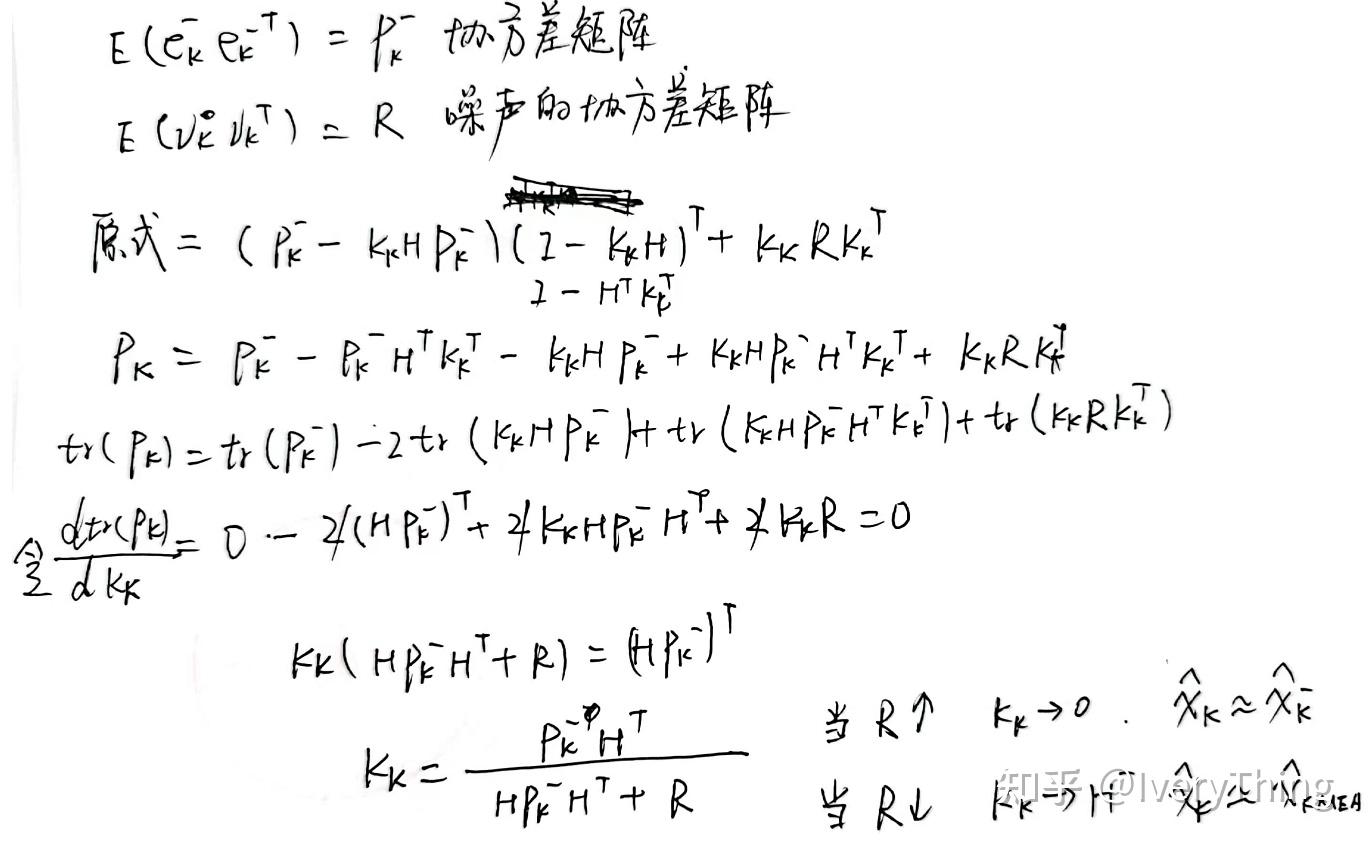 E(e_K^- e_K^{-T}) = P_K^- 协方差矩阵
E(ν_K ν_K^T) = R 噪声的协方差矩阵
原式 = (P_K^- - K_K H P_K^-)(I - K_K H)^T + K_K R K_K^T
I - H^T K_K^T
P_K = P_K^- - P_K^- H^T K_K^T - K_K H P_K^- + K_K H P_K^- H^T K_K^T + K_K R K_K^T
tr(P_K) = tr(P_K^-) - 2tr(K_K H P_K^-) + tr(K_K H P_K^- H^T K_K^T) + tr(K_K R K_K^T)
令 dtr(P_K)/dK_K = 0 - 2(H P_K^-)^T + 2K_K H P_K^- H^T + 2K_K R = 0
K_K(H P_K^- H^T + R) = (H P_K^-)^T
K_K = P_K^- H^T / (H P_K^- H^T + R)
当 R↑ K_K→0 . X̂_K ≈ X̂_K^-
当 R↓ K_K→H^- X̂_K ≈ X̂_{KMEA}
知乎 @IveryThing